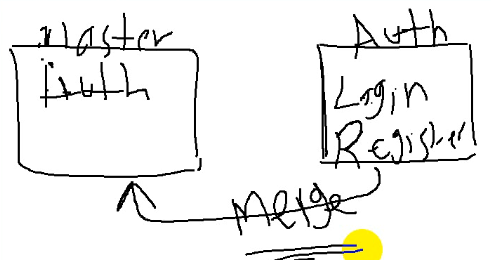 Master
Auth
Auth
Login
Register
Merge